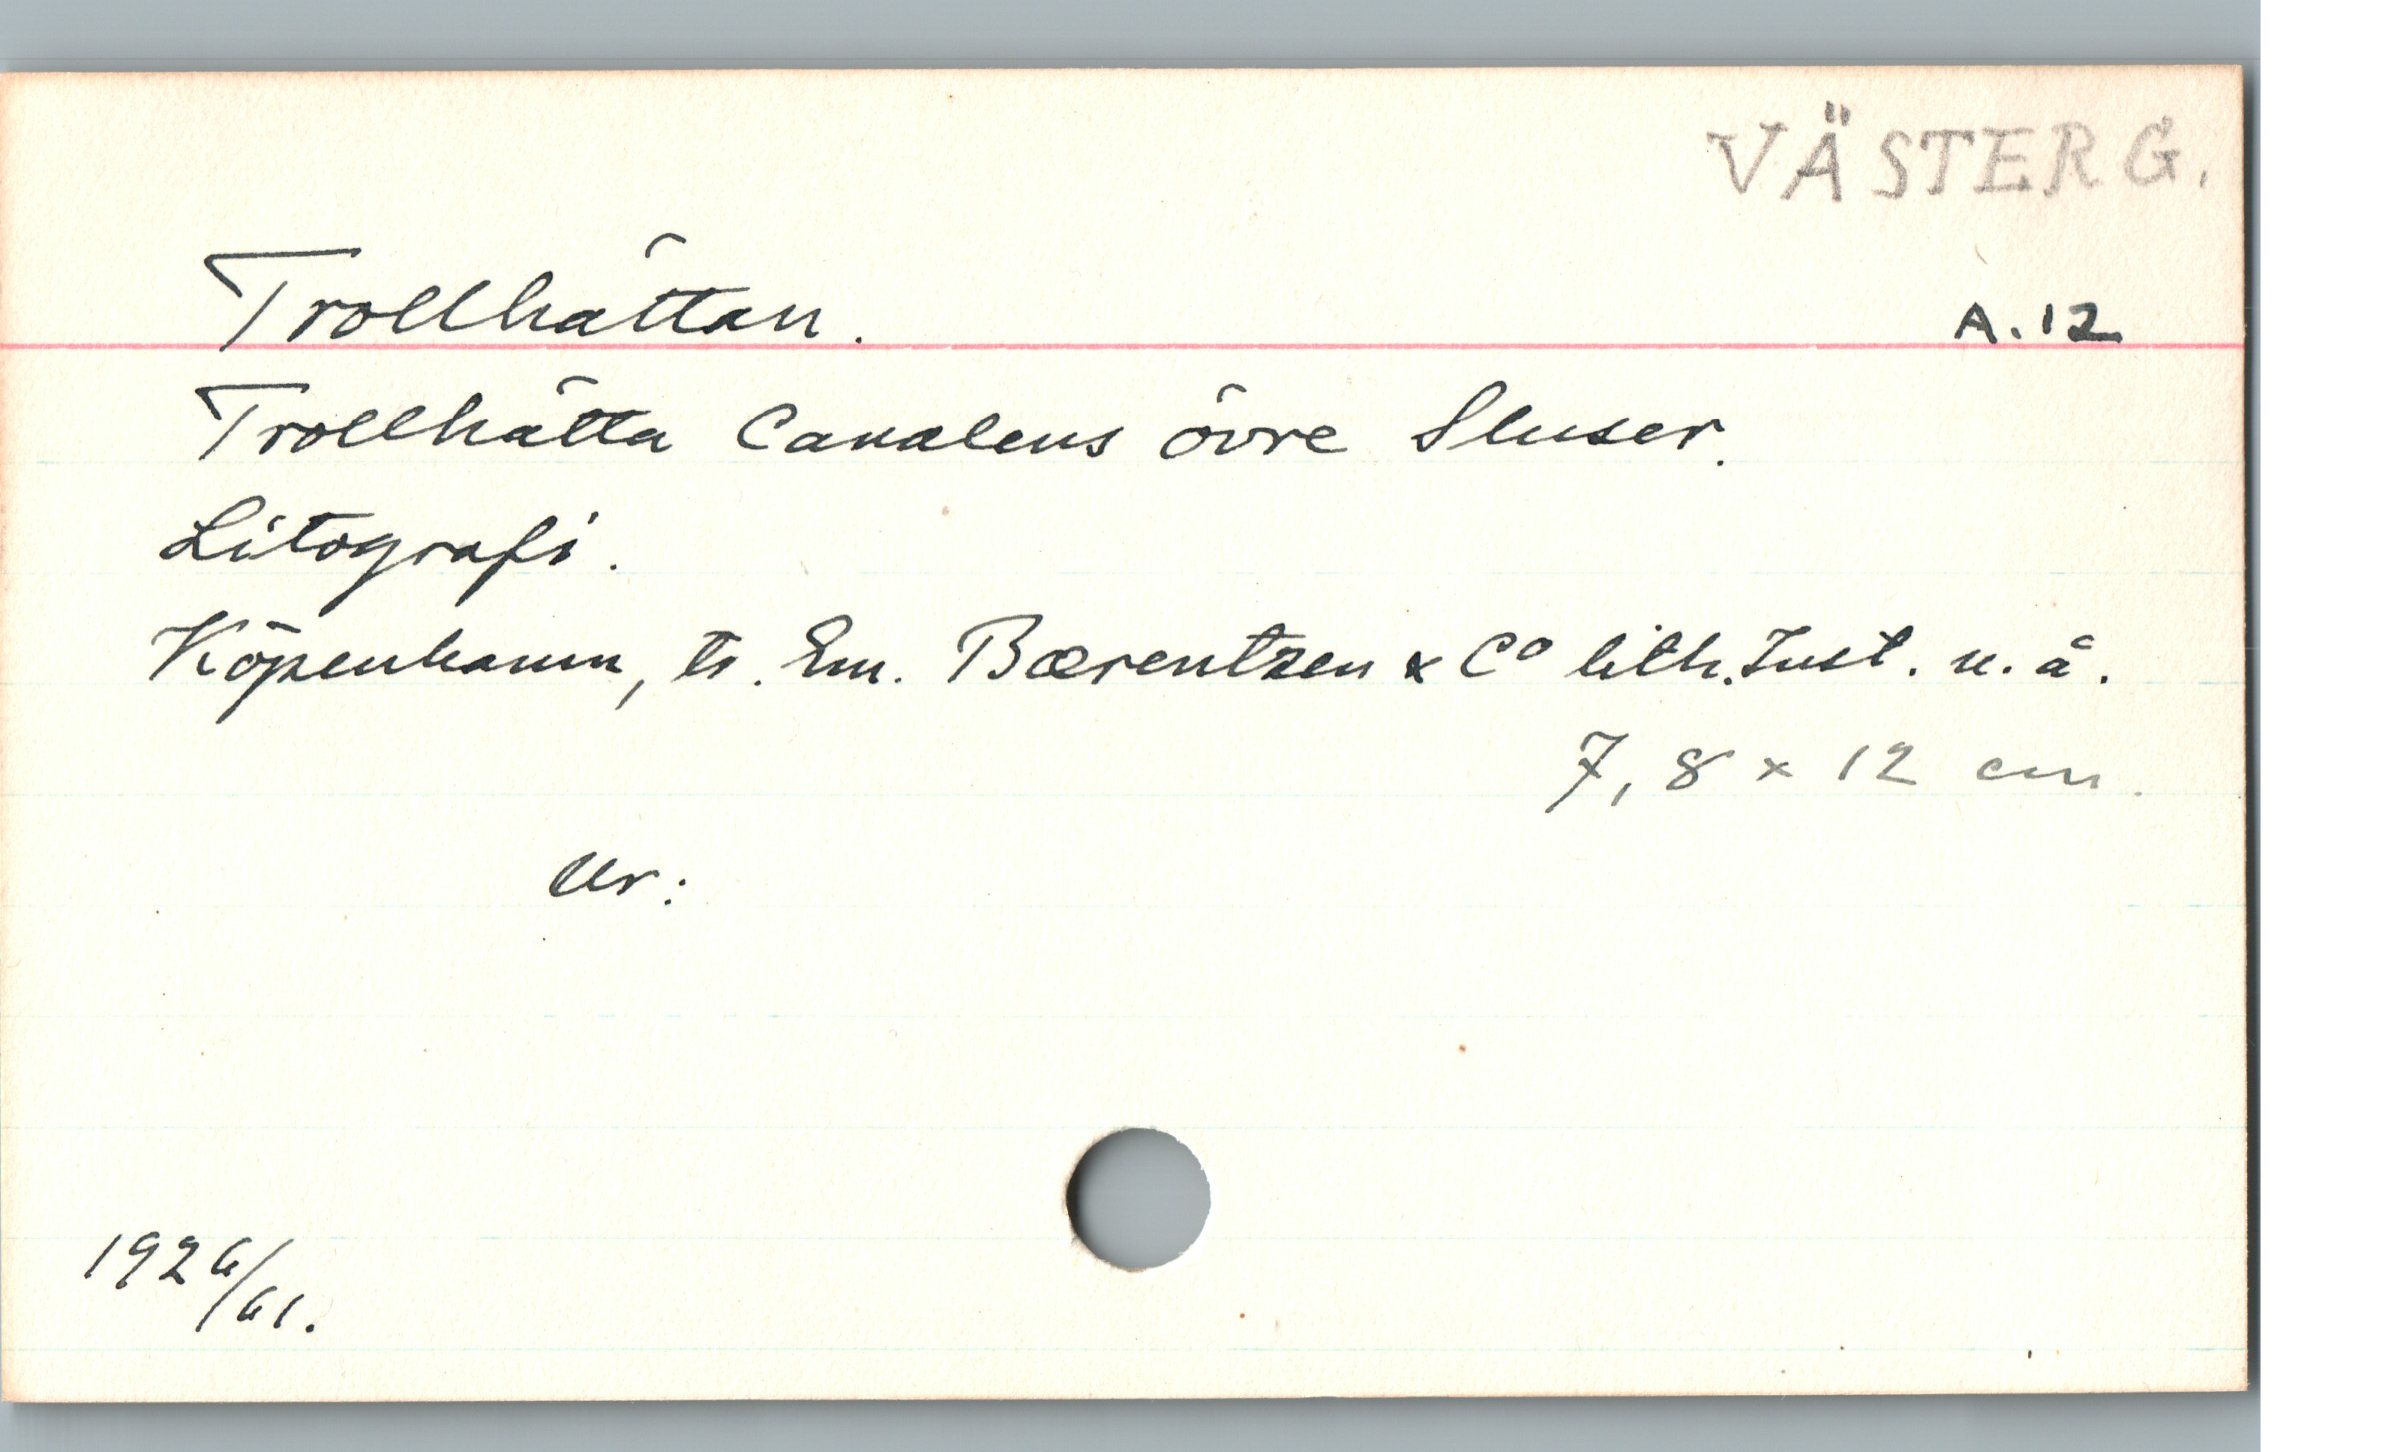 VÄSTERG.
Trollhättan. A.12
Trollhätta Canalens övre Sluser.
Litografi.
Köpenhamn, tr. Em. Bærentzen & Co lith. Inst. u. å.
7,8 x 12 cm.
Ur:
1926/61.